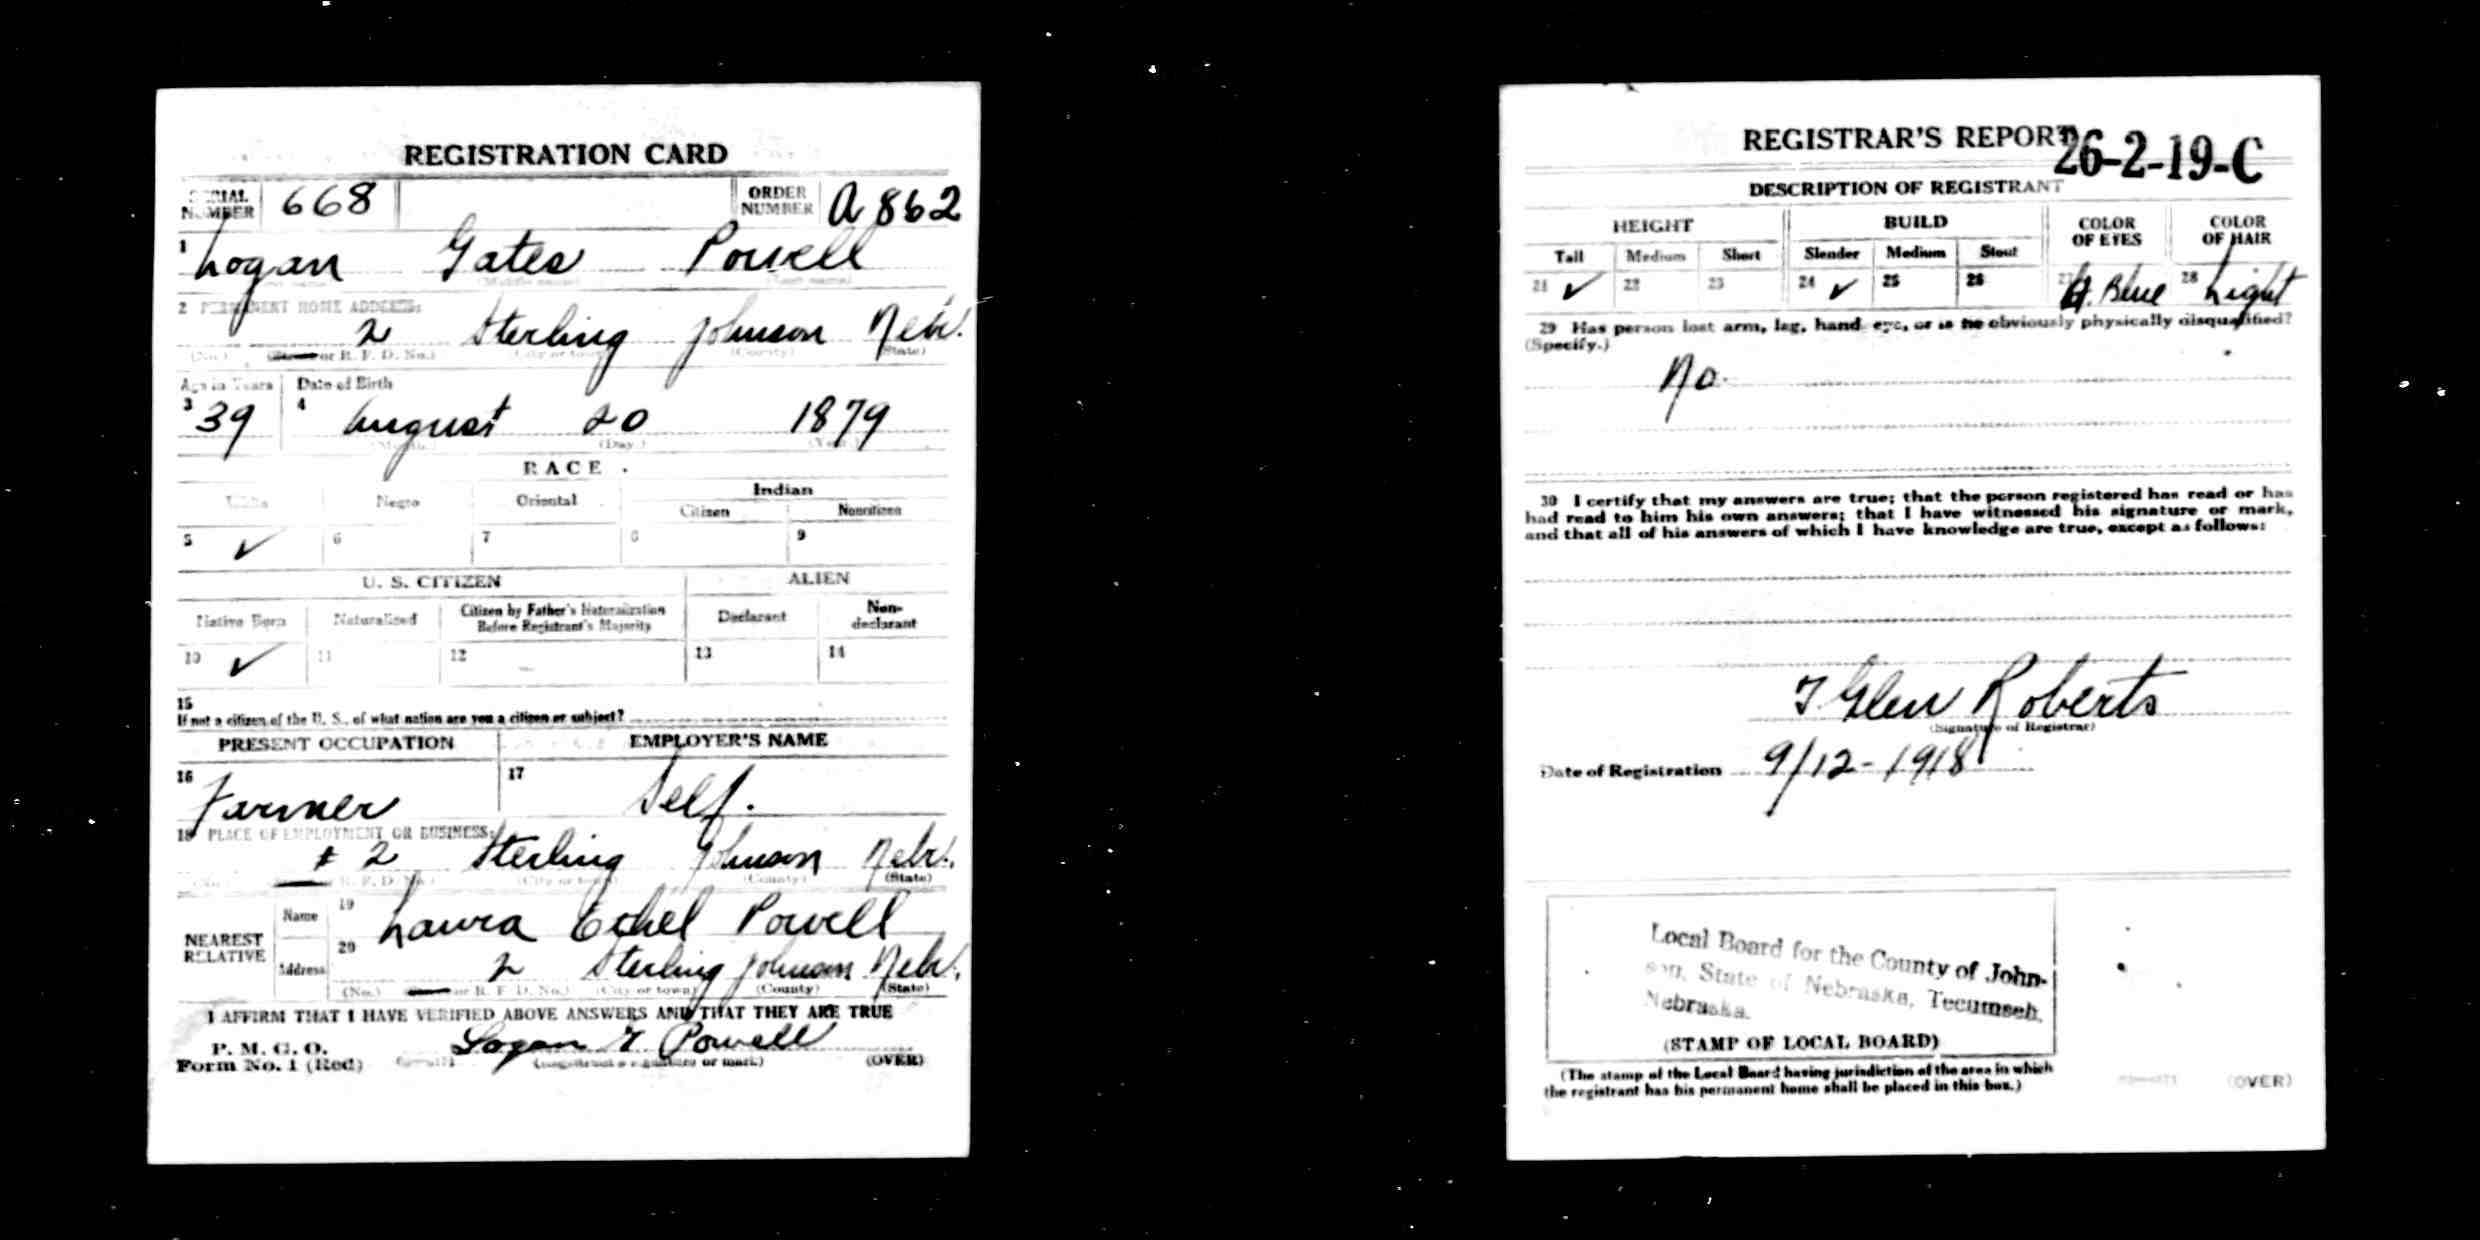 REGISTRATION CARD
SERIAL NUMBER 668 ORDER NUMBER A 862
1 Logan Gates Powell
(Middle name) (Last name)
2 PERMANENT HOME ADDRESS:
2 Sterling Johnson Nebr.
(No.) (Street or R. F. D. No.) (City or town) (County) (State)
Age in Years Date of Birth
3 39 4 August 20 1879
(Month.) (Day.) (Year.)
RACE
White Negro Oriental Indian
Citizen Noncitizen
5 ✓ 6 7 8 9
U. S. CITIZEN ALIEN
Native Born Naturalized Citizen by Father's Naturalization Before Registrant's Majority Declarant Non-declarant
10 ✓ 11 12 13 14
15
If not a citizen of the U. S., of what nation are you a citizen or subject?
PRESENT OCCUPATION EMPLOYER'S NAME
16 Farmer 17 Self.
18 PLACE OF EMPLOYMENT OR BUSINESS:
# 2 Sterling Johnson Nebr.
(No.) or R. F. D. No.) (City or town) (County) (State)
NEAREST RELATIVE
Name 19 Laura Ethel Powell
Address 20 2 Sterling Johnson Nebr.
(No.) (Street or R. F. D. No.) (City or town) (County) (State)
I AFFIRM THAT I HAVE VERIFIED ABOVE ANSWERS AND THAT THEY ARE TRUE
P. M. G. O.
Form No. 1 (Red) Logan G Powell
(Registrant's signature or mark) (OVER)
REGISTRAR'S REPORT
26-2-19-C
DESCRIPTION OF REGISTRANT
HEIGHT BUILD COLOR OF EYES COLOR OF HAIR
Tall Medium Short Slender Medium Stout
21 ✓ 22 23 24 ✓ 25 26 27 Blue 28 Light
29 Has person lost arm, leg, hand, eye, or is he obviously physically disqualified?
(Specify.)
No.
30 I certify that my answers are true; that the person registered has read or has
had read to him his own answers; that I have witnessed his signature or mark,
and that all of his answers of which I have knowledge are true, except as follows:
Glen Roberts
(Signature of Registrar)
Date of Registration 9/12-1918
Local Board for the County of John-
son, State of Nebraska, Tecumseh,
Nebraska.
(STAMP OF LOCAL BOARD)
(The stamp of the Local Board having jurisdiction of the area in which
the registrant has his permanent home shall be placed in this box.)
(OVER)